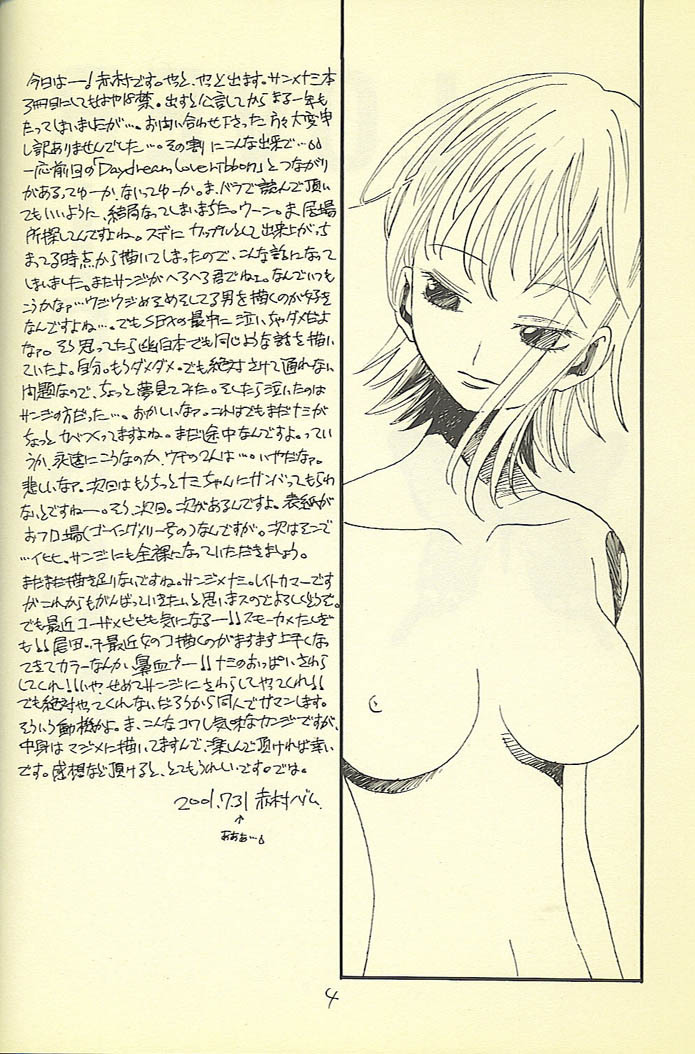 今日はーー!赤村です。やっと、やっと出ます。サンメナミ本
3冊目にしてもはや18禁。出すと公言してからまる一年も
たってしまいましたが…。お問い合わせ下さった方々大変申
し訳ありませんでした…。その割にこんな出来で…
一応前回の「Daydream Loveribbon」とつながり
がある、てゆーか、ないってゆーか。ま、バラで読んで頂い
てもいいように、結局なってしまいまちた。ウーン。ま、居場
所探してんですよね。スデにカップルとして出来上がっち
まってる時点から描いてしまったので、こんな話になって
しまいました。またサンジがへろへろ君でねェ。なんでいつも
こうかなァ…ウジウジめそめそしてる男を描くのが好き
なんですよね…。でもSEXの最中に泣いちゃダメだよ
なァ。そう思ってたら幽白本でも同じような話を描い
ていたよ。自分。もうダメダメ。でも絶対さけて通れない
問題なので、ちょっと夢見てみた。そしたら泣いたのは
サンジの方だった…。おかしいなァ。これはでもまだナミが
ちょっとカベつくってますよね。まだ途中なんですよ。ってい
うか、永遠にこうなのか、ウチの2人は…。いやだなァ。
悲しいなァ。次回はもうちっとナミちゃんにガンバってもらわ
ないとですねー。そう、次回。次があるんですよ。表紙が
おフロ場(ゴーイングメリー号の)なんですが。次はそこで
…イヒヒ。サンジにも全裸になっていただきましょう。
まだまだ描き足りないですね。サンジ×ナミ。レイトカマーです
がこれからもがんばっていきたいと思いまスのでよろしくどうぞ。
でも最近コーザ×ビビも気になるー!!スモーカ×たしぎ
も!!尾田っ子最近女のコ描くのがますます上手くなっ
てきてカラーなんか、鼻血ブー!!ナミのおっぱいさわら
してくれ!!いや、せめてサンジにさわらしてやってくれ!!
でも絶対やってくれないだろうから同人でガマンします。
そういう動機かよ。ま、こんなコワレ気味なカンジですが、
中身はマジメに描いてますんで、楽しんで頂ければ幸い
です。感想など頂けると、とてもうれしいです。では。
2001.7.31 赤村ベム.
↑
あああ…
4